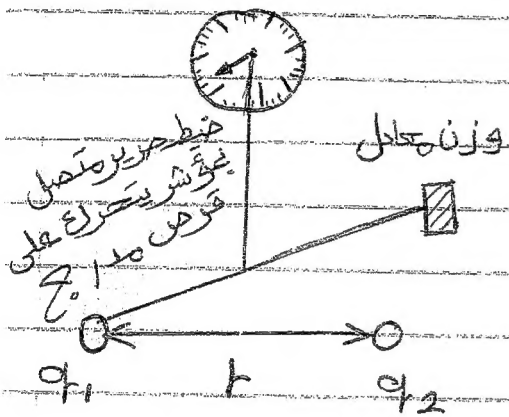 خيط حرير متصل
بمؤشر يتحرك على
قرص مدرج
وزن معادل
q₁
r
q₂